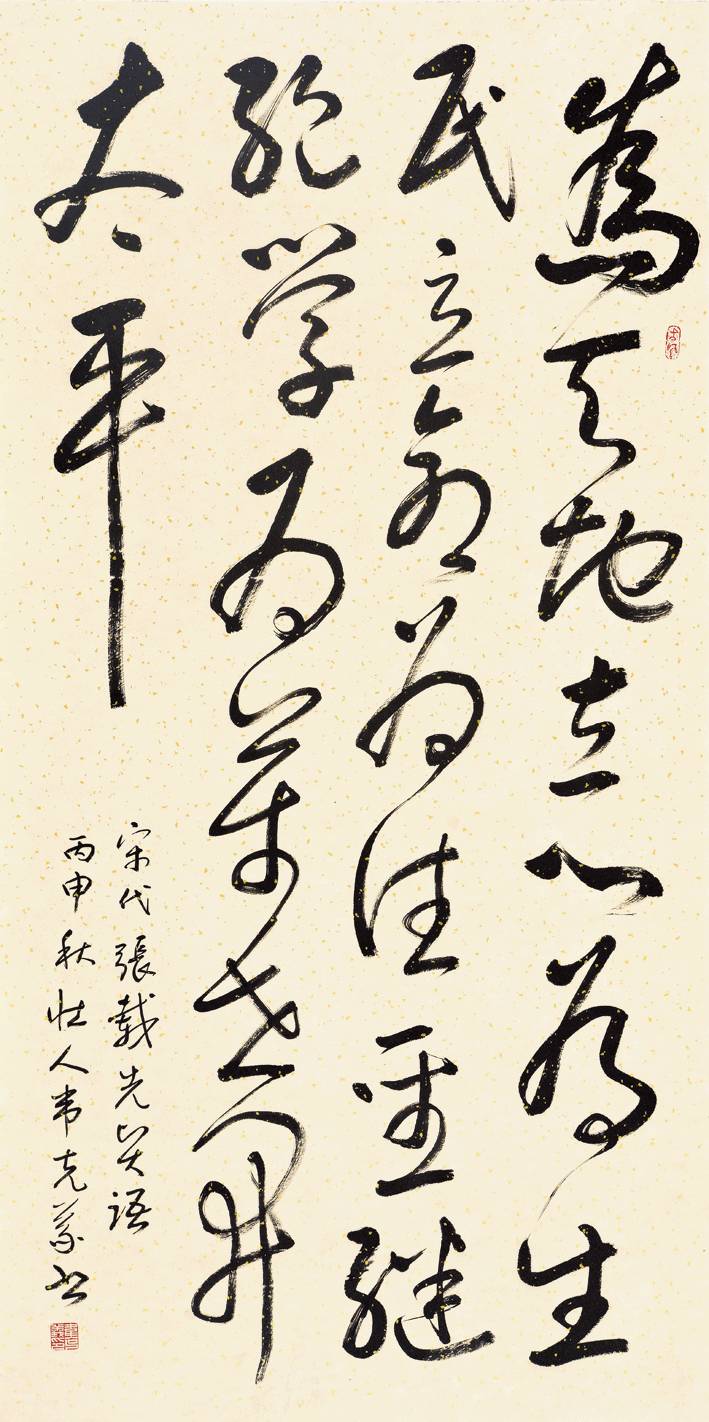 為天地立心為生
民立命为往聖继
绝学为萬世開
太平
宋代張載先賢語
丙申秋壮人韦克義书